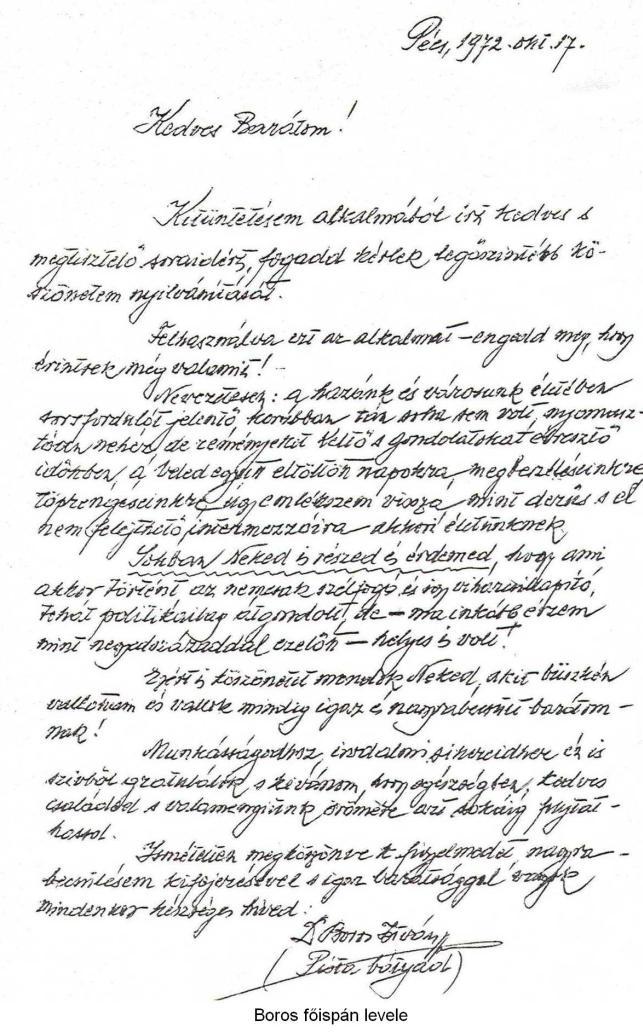 Pécs, 1972. okt. 17.
Kedves Barátom!
Kitüntetésem alkalmából írt kedves s
megtisztelő soraidért, fogadd kérlek legőszintébb kö-
szönetem nyilvánítását.
Felhasználva ezt az alkalmat – engedd meg, hogy
érintsek még valamit!
Nevezetesen: a hazánk és városunk életében
sorsfordulót jelentő, korábban tán soha sem volt, nyomasz-
tóan nehéz, de reményeket keltő s gondolatokat ébresztő
időkben, a Veled együtt eltöltött napokra, megbeszéléseinkre
töprengéseinkre úgy emlékszem vissza, mint derűs s el
nem felejthető intermezzóira akkori életünknek.
Sokban Neked is részed és érdemed, hogy ami
akkor történt az nemcsak szélfogó, és így viharcsillapító,
tehát politikailag átgondolt, de – ma inkább érzem
mint negyedszázaddal ezelőtt – helyes is volt!
Ezért is köszönetet mondok Neked, akit büszkén
vallottam és vallok mindig igaz és nagyrabecsült barátom-
nak!
Munkásságodhoz, irodalmi sikereidhez én is
szívből gratulálok s kívánom, hogy egészségben, kedves
családod s valamennyiünk örömére azt sokáig folytat-
hassad.
Ismételten megköszönve figyelmedet, nagyra-
becsülésem kifejezésével s igaz barátsággal vagyok
mindenkor készséges híved:
Dr Boros István
(Pista bátyád)
Boros főispán levele